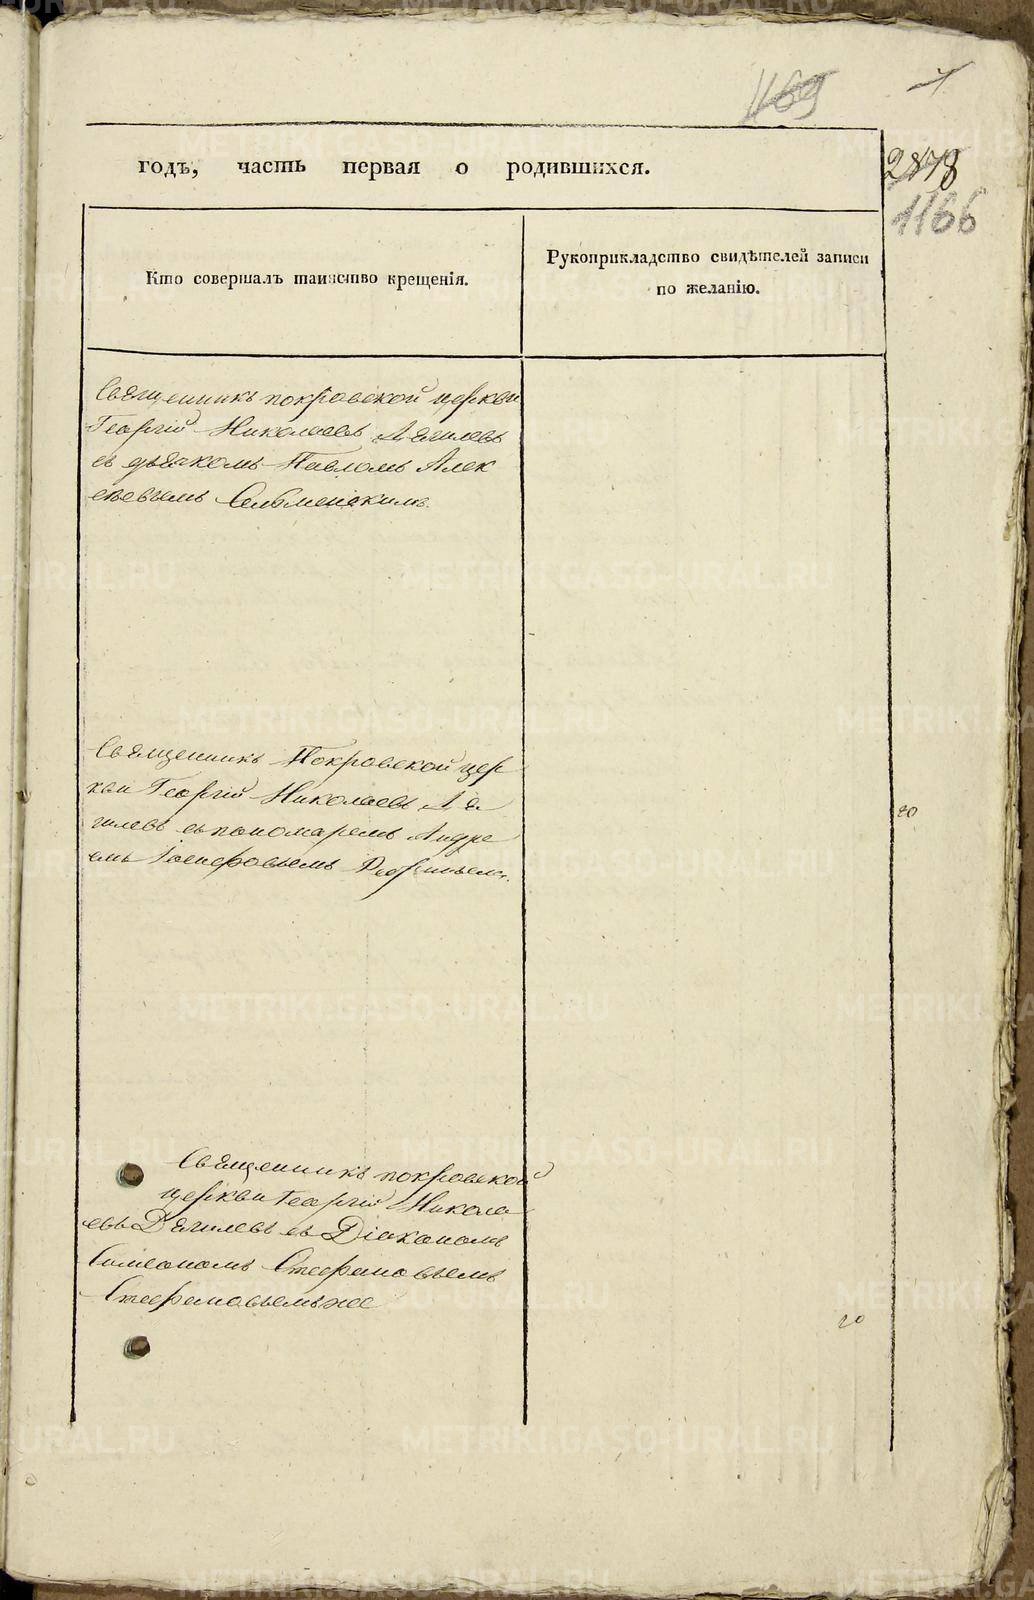 1169
2878
1166
годъ, часть первая о родившихся.
Кто совершалъ таинство крещенія.
Рукоприкладство свидѣтелей записи
по желанію.
Священникъ покровской церкви
Георгій Николаевъ Дягилевъ
съ дьячкомъ Павломъ Алек
сѣевымъ Сельменскимъ.
Священникъ Покровской цер
кви Георгій Николаевъ Дя
гилевъ съ пономаремъ Андре
емъ Іосифовымъ
20
Священникъ покровской
церкви Георгій Никола
евъ Дягилевъ съ Діакономъ
Симеономъ Стефановымъ
Стефановымъ же
20
METRIKI.GASO-URAL.RU